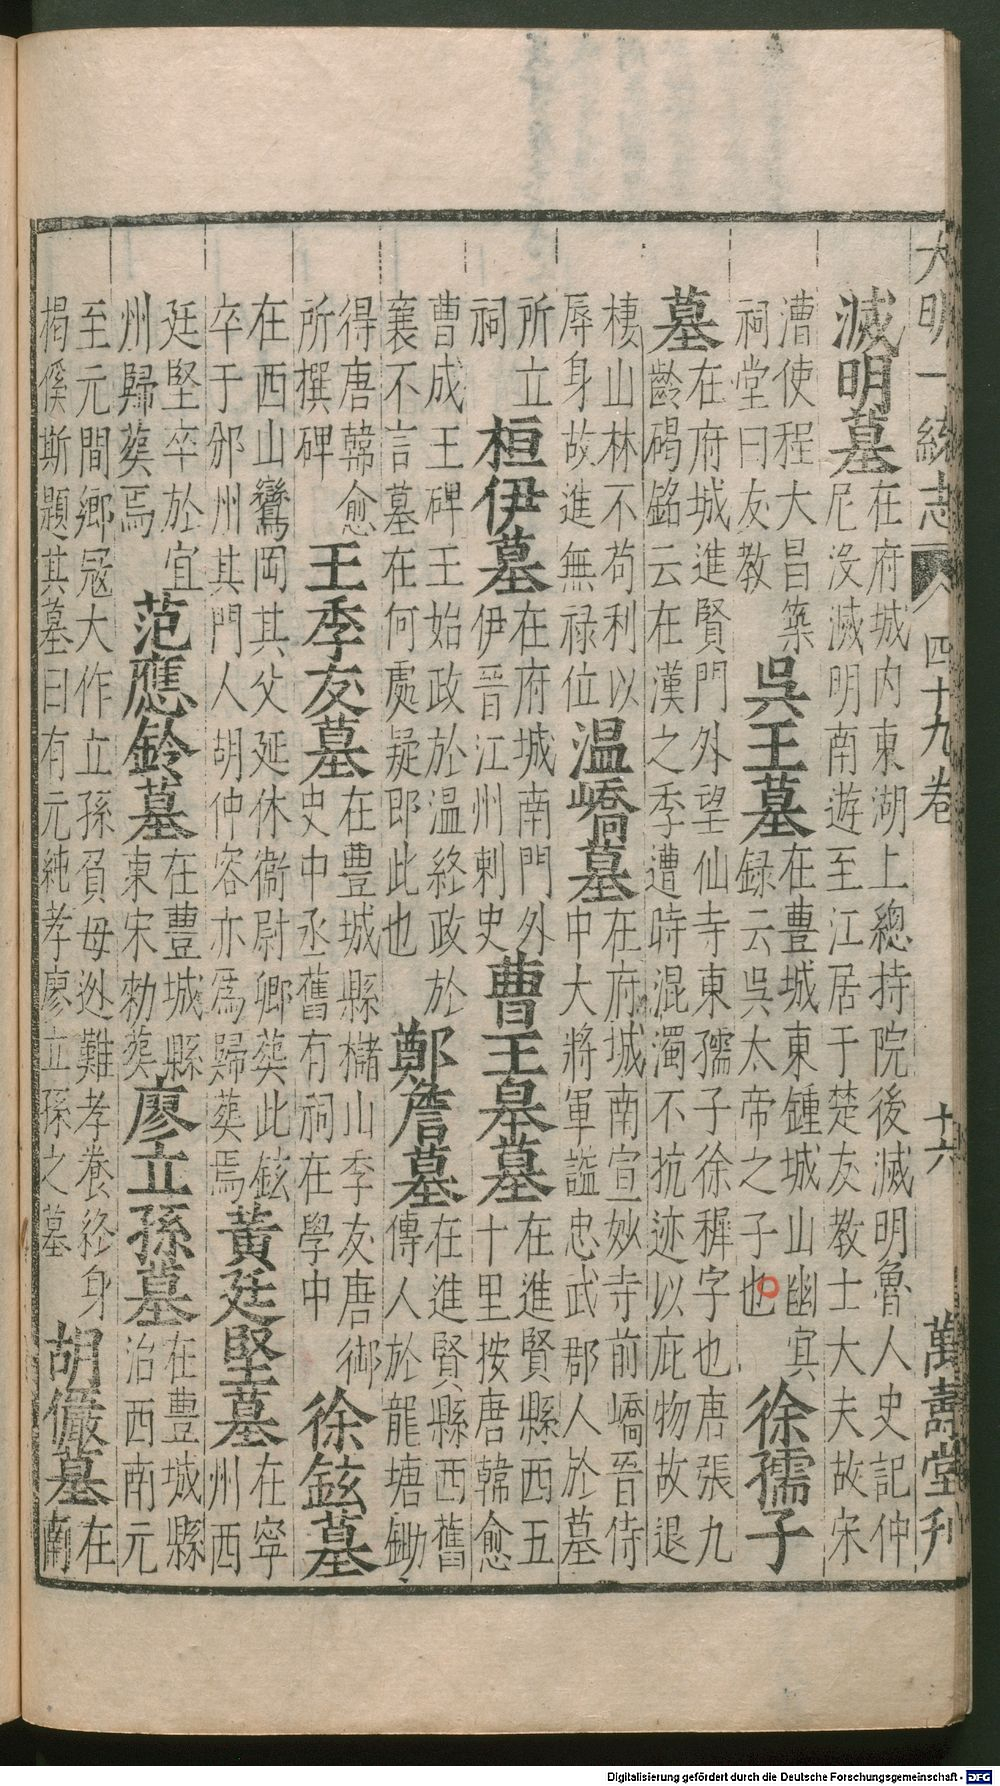 大明一統志 四十九卷 十六 萬壽堂刊
滅明墓
在府城内東湖上總持院後滅明魯人史記仲
尼没滅明南遊至江居于楚友教士大夫故宋
漕使程大昌築
祠堂曰友教
吳王墓
在豊城東鍾城山幽㝠
録云吳太帝之子也
徐孺子
墓
在府城進賢門外望仙寺東孺子徐穉字也唐張九
齡碣銘云在漢之季遭時混濁不抗迹以庇物故退
棲山林不苟利以
辱身故進無禄位
温嶠墓
在府城南宣妙寺前嶠晉侍
中大將軍謚忠武郡人於墓
所立
祠
桓伊墓
在府城南門外
伊晉江州剌史
曹王皋墓
在進賢縣西五
十里按唐韓愈
曹成王碑王始政於温終政於
襄不言墓在何處疑即此也
鄭詹墓
在進賢縣西舊
傳人於龍塘鋤
得唐韓愈
所撰碑
王季友墓
在豊城縣櫧山季友唐御
史中丞舊有祠在學中
徐鉉墓
在西山鸞岡其父延休衛尉卿葬此鉉
卒于邠州其門人胡仲容亦爲歸葬焉
黃廷堅墓
在寧
州西
廷堅卒於宜
州歸葬焉
范應鈴墓
在豊城縣
東宋勑葬
廖立孫墓
在豊城縣
治西南元
至元間鄉冦大作立孫負母迯難孝養終身
揭傒斯題其墓曰有元純孝廖立孫之墓
胡儼墓
在
南
Digitalisierung gefördert durch die Deutsche Forschungsgemeinschaft - DFG